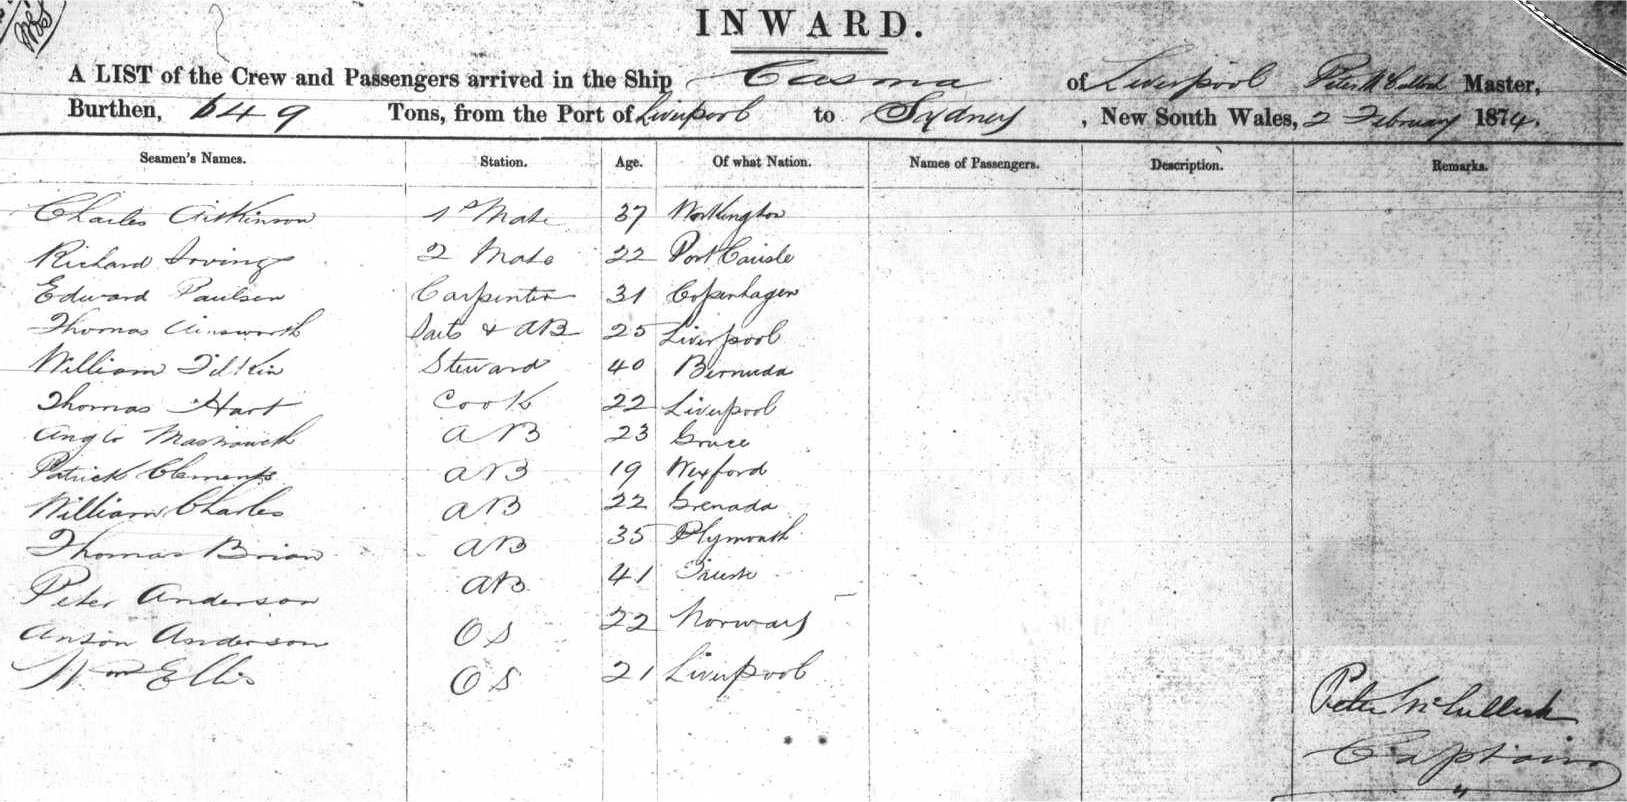 INWARD.
A LIST of the Crew and Passengers arrived in the Ship Casma of Liverpool Peter McCulloch Master,
Burthen, 649 Tons, from the Port of Liverpool to Sydney, New South Wales, 2 February 1874.
Seamen's Names. Station. Age. Of what Nation. Names of Passengers. Description. Remarks.
Charles Aitkinson 1st Mate 37 Workington
Richard Irving 2 Mate 22 Port Carlisle
Edward Paulsen Carpenter 31 Copenhagen
Thomas Ainsworth & AB 25 Liverpool
William Steward 40 Bermuda
Thomas Hart Cook 22 Liverpool
AB 23 Greece
Patrick Clements AB 19 Wexford
William Charles AB 22 Grenada
Thomas Brian AB 35 Plymouth
Peter Anderson AB 41
Anton Anderson OS 22 Norway
Wm Ellis OS 21 Liverpool
Peter McCulloch
Captain